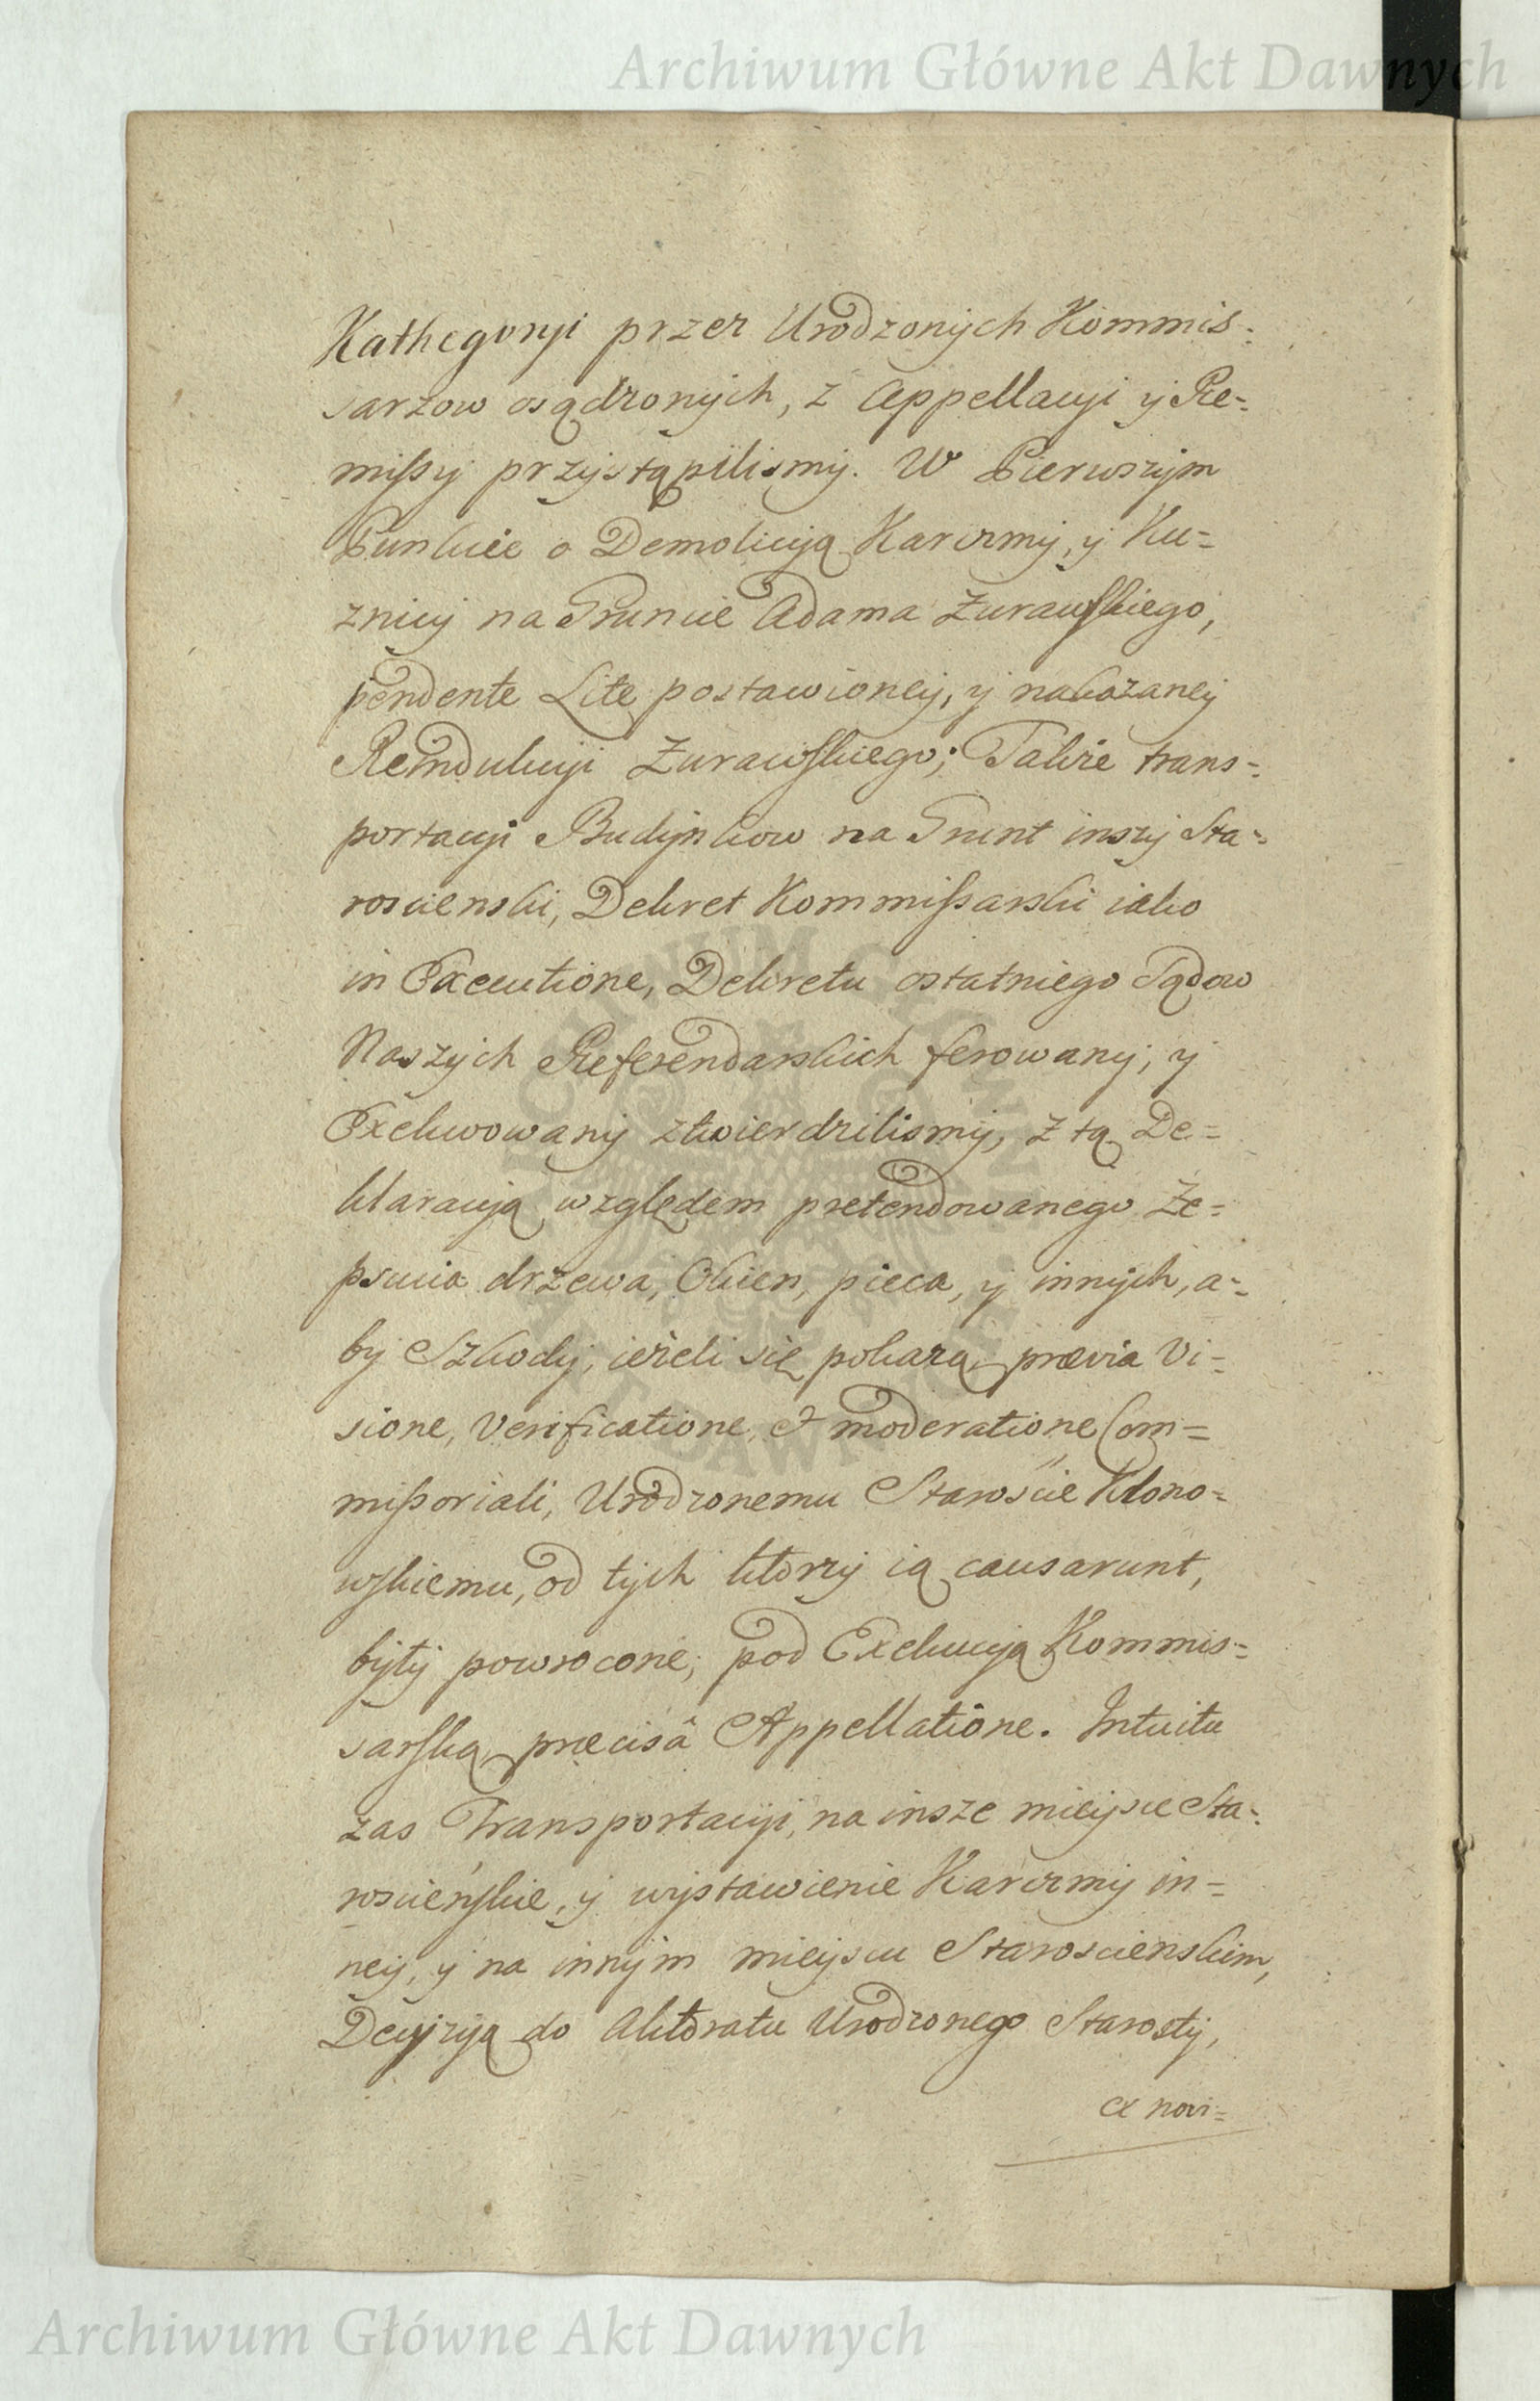 Archiwum Główne Akt Dawnych
Kathegoryi przez Urodzonych Kommis=
sarzow osądzonych, z Appellacyi y Re=
missy przystąpilismy. W Pierwszym
Punkcie o Demolicyą Karczmy, y Ku=
znicy na Gruncie Adama Zurawskiego,
pendente Lite postawioney, y nakazaney
Reindukcyi Zurawskiego; Takze trans=
portacyi Budynkow na Grunt inszy Sta=
roscienski, Dekret Kommissarski iako
in Executione, Dekretu ostatniego Sądow
Naszych Referendarskich ferowany, y
Exekwowany ztwierdzilismy, z tą De=
klaracyą względem pretendowanego Ze=
psucia drzewa, Okien, pieca, y innych, a=
by Szkody, ieżeli się pokazą, prævia Vi=
sione, Verificatione, et moderatione Com=
missoriali, Urodzonemu Staroscie Klono=
wskiemu, od tych ktorzy ią causarunt,
były powrocone, pod Exekucyą Kommis=
sarską, præcisâ Appellatione. Intuitu
zas Transportacyi, na insze mieysce Sta=
roscieńskie, y wystawienie Karczmy in=
ney, y na innym mieyscu Staroscienskim,
Decyzyą do Aktoratu Urodzonego Starosty,
ex novi=
Archiwum Główne Akt Dawnych